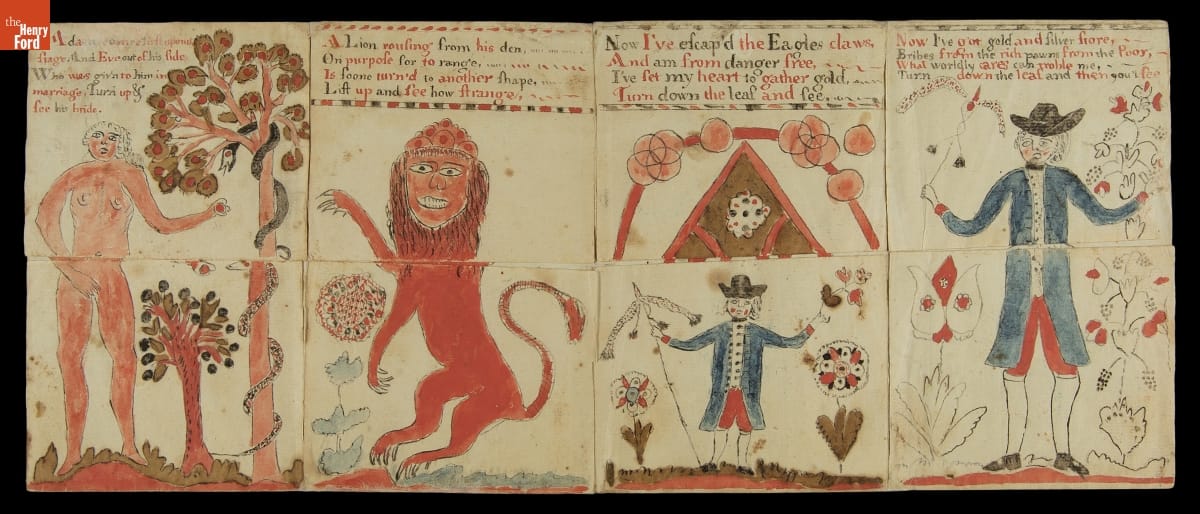 the
Henry
Ford
Adam comes first upon
ſtage, And Eve out of his ſide,
Who was givn to him in
marriage, Turn up &
ſee his bride.
A Lion rousing from his den,
On purpoſe for to range,
Is ſoone turn'd to another ſhape,
Lift up and ſee how ſtrange,
Now I've eſcap'd the Eagles claws,
And am from danger free,
I've ſet my heart to gather gold,
Turn down the leaf and ſee,
Now I've got gold and ſilver ſtore,
Bribes from the rich pawns from the Poor,
What worldly cares can troble me,
Turn down the leaf and then you'll ſee